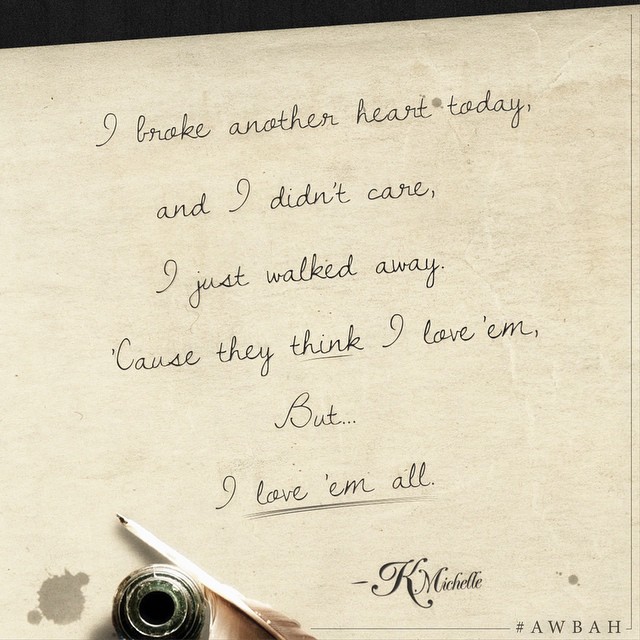 I broke another heart today,
and I didn't care,
I just walked away.
'Cause they think I love 'em,
But...
I love 'em all.
– K Michelle
#AWBAH